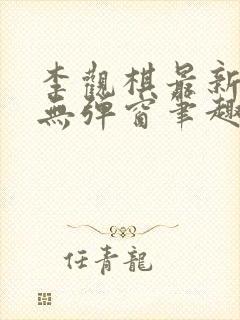 李觀棋最新
無彈窗筆趣
任青龍